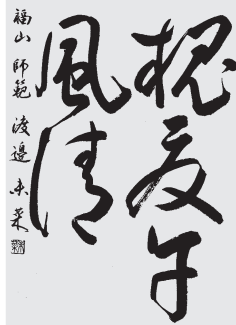 槐夏午
風清
福山 師範 渡邊 未菜